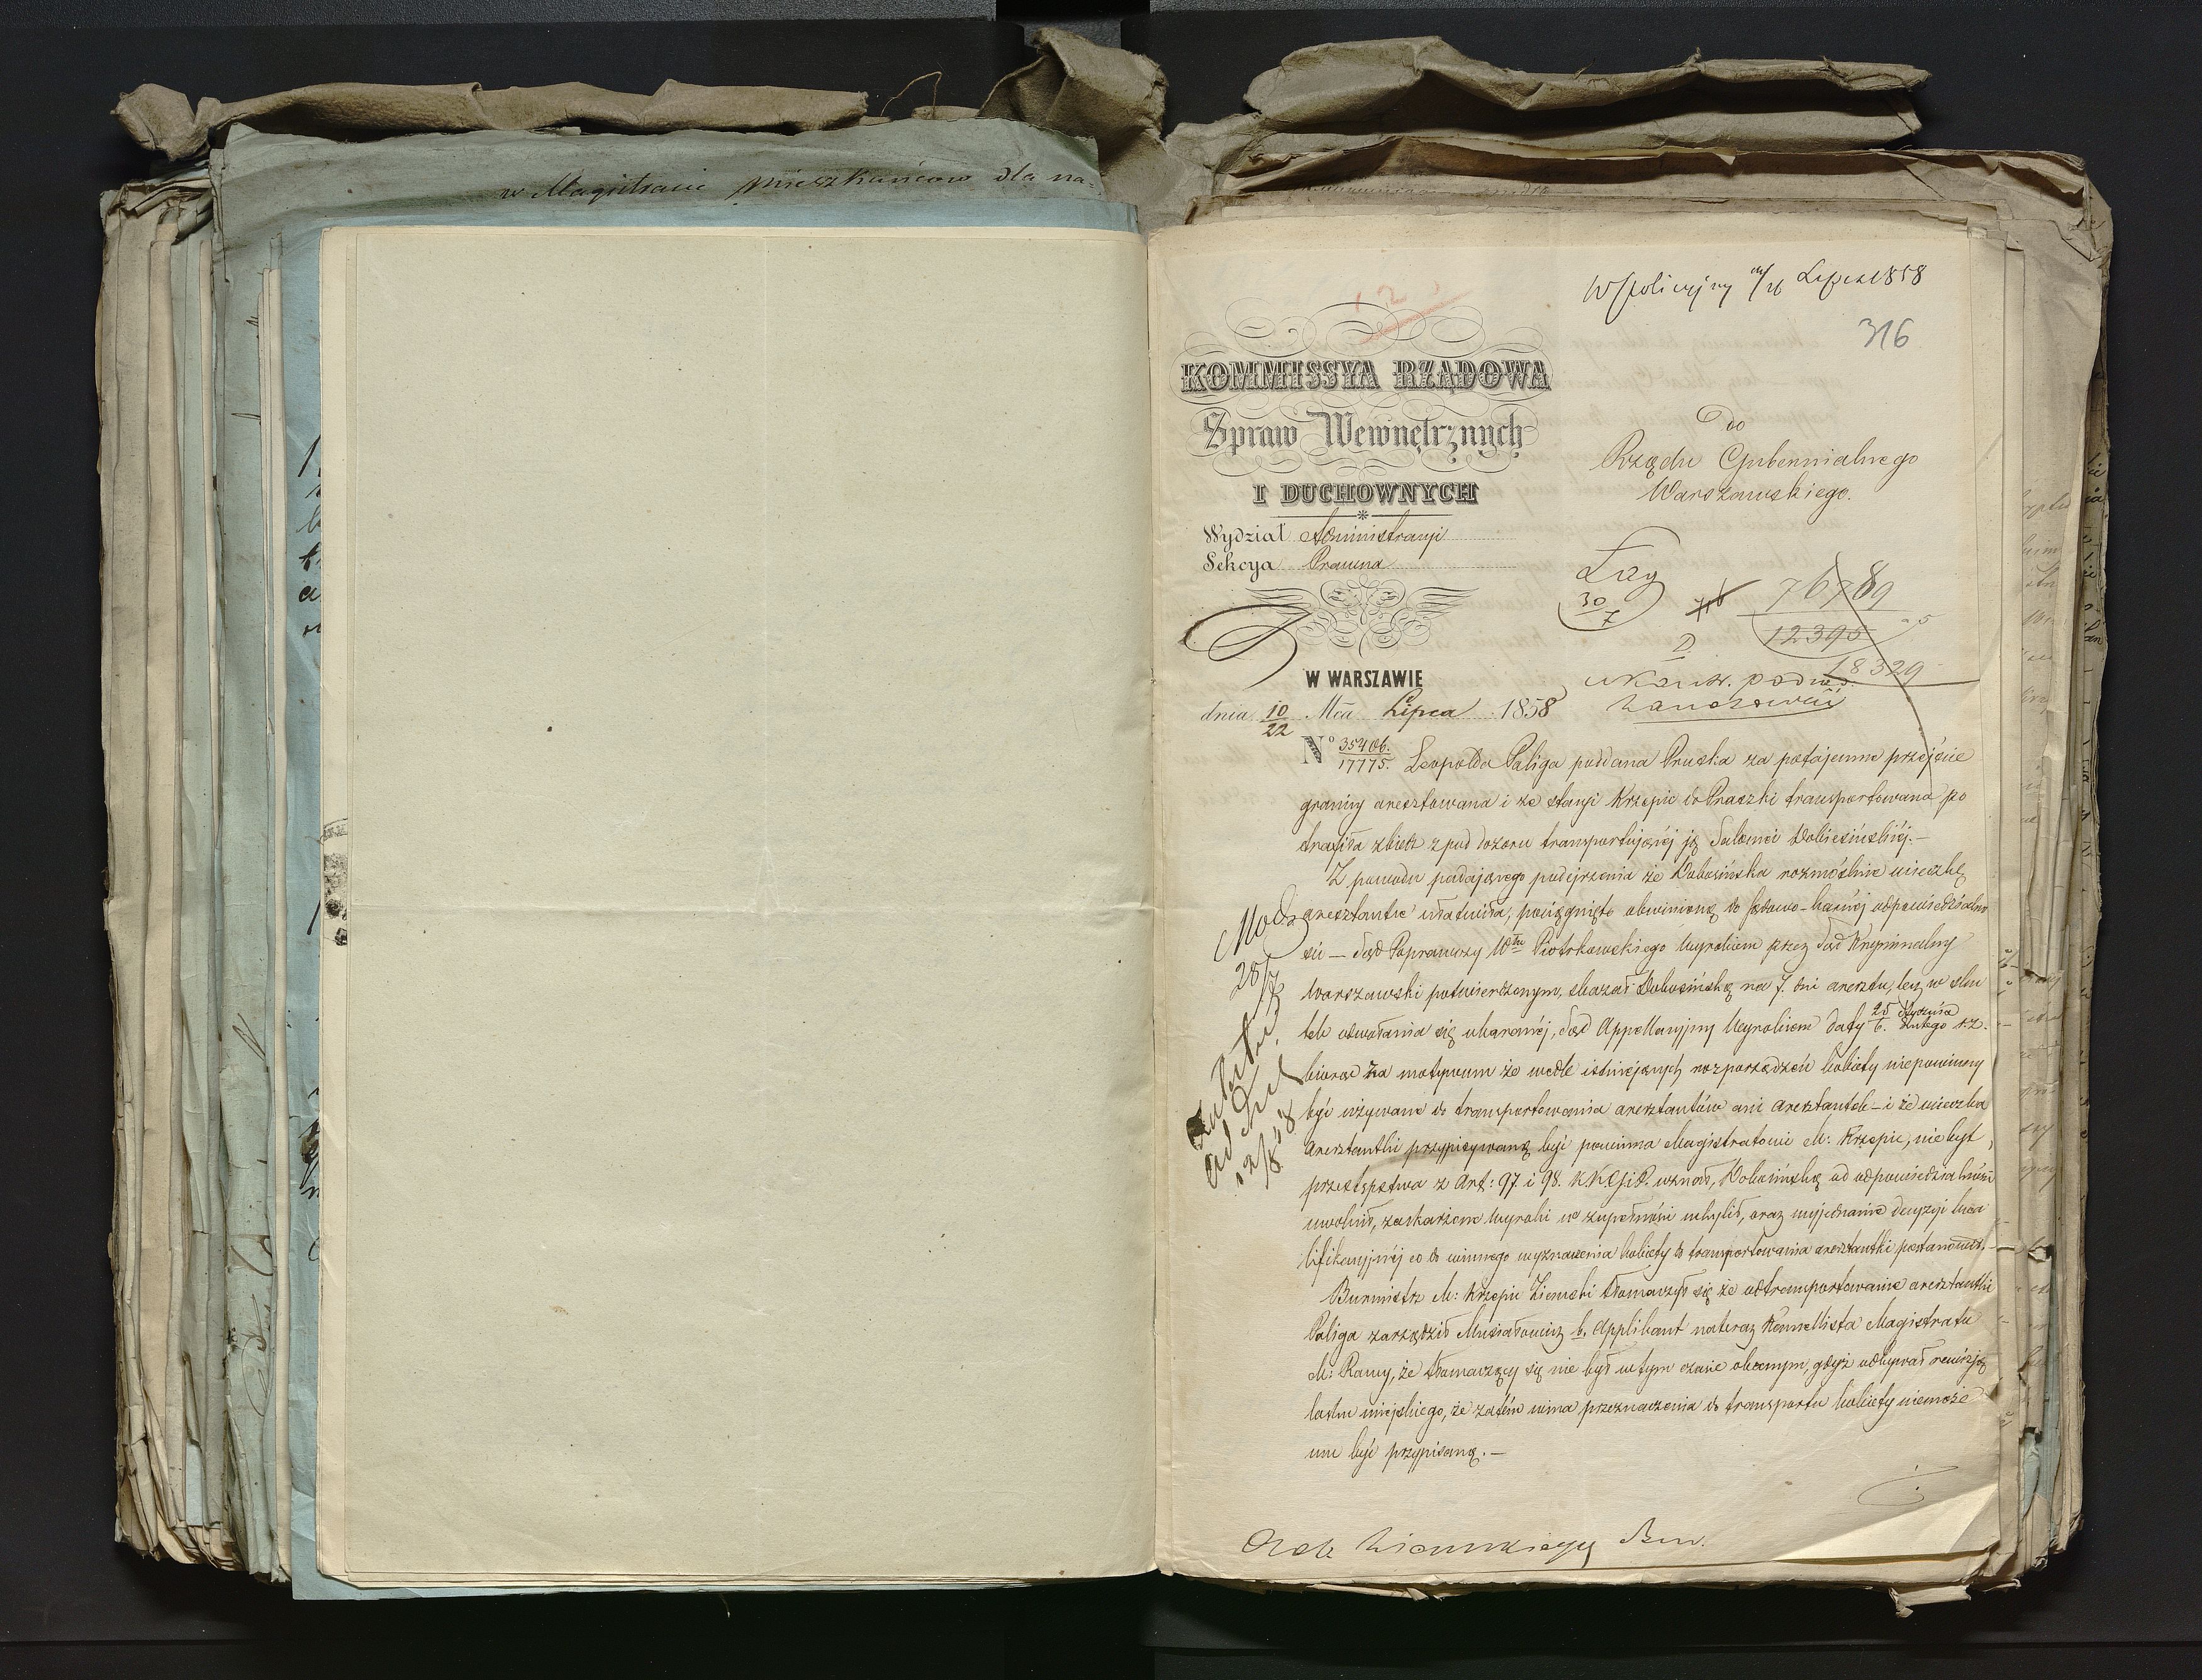 w Magistracie mieszkańców dla na=
W policyjny Lipca 1858
316
KOMMISSYA RZĄDOWA
Spraw Wewnętrznych
I DUCHOWNYCH
Do
Rządu Gubernialnego
Warszawskiego.
Wydział Administracyi
Sekcya Prawna
30
7
76789
12395
18329
W WARSZAWIE
dnia 10/22 Mca Lipca 1858
No 35406./17775. Leopolda Paliga poddana Pruska za potajemne przejście
granicy aresztowana i ze stacyi Krzepic do Praszki transportowana po
trafiła zbiedz z pod dozoru transportującéj ją Salomei Dobiesińskiéj.—
Z powodu padającego podejrzenia że Dobosińska rozmyślnie ucieczkę
aresztantce ułatwiła, pociągnięto obwinioną do sądowo-karnéj odpowiedzialno
ści — Sąd Poprawczy Wdłu Piotrkowskiego Wyrokiem przez Sąd Kryminalny
Warszawski potwierdzonym, skazał Dobosińską na 7. dni aresztu, lecz w sku
tek odwołania się ukaranéj, Sąd Appellacyjny Wyrokiem daty 25 Stycznia/6. Lutego r.z.
biorąc za motywum że wedle istniejących rozporządzeń kobiety niepowinny
być używane do transportowania aresztantów ani aresztantek — i że ucieczka
Aresztantki przypisywaną być powinna Magistratowi M: Krzepic, niebyt
przestępstwa z Art: 97 i 98. K.K.G.i P. uznał, Dobosińską od odpowiedzialności
uwolnił, zaskarżone Wyroki w zupełności uchylił, oraz wyjednanie decyzyi kwa
lifikacyjnéj co do winnego wyznaczenia kobiety do transportowania aresztantki postanowił.—
Burmistrz M: Krzepic Ziemski tłomaczył się że odtransportowanie aresztantki
Paliga zarządził Musiałowicz b. Applikant nateraz Kancellista Magistratu
M: Rawy, że tłomaczący się nie był w tym czasie obecnym, gdyż odbywał rewizją
lasku miejskiego, że zatém wina przeznaczenia do transportu kobiety niemoże
mu być przypisaną.—
28/7
12/8 58